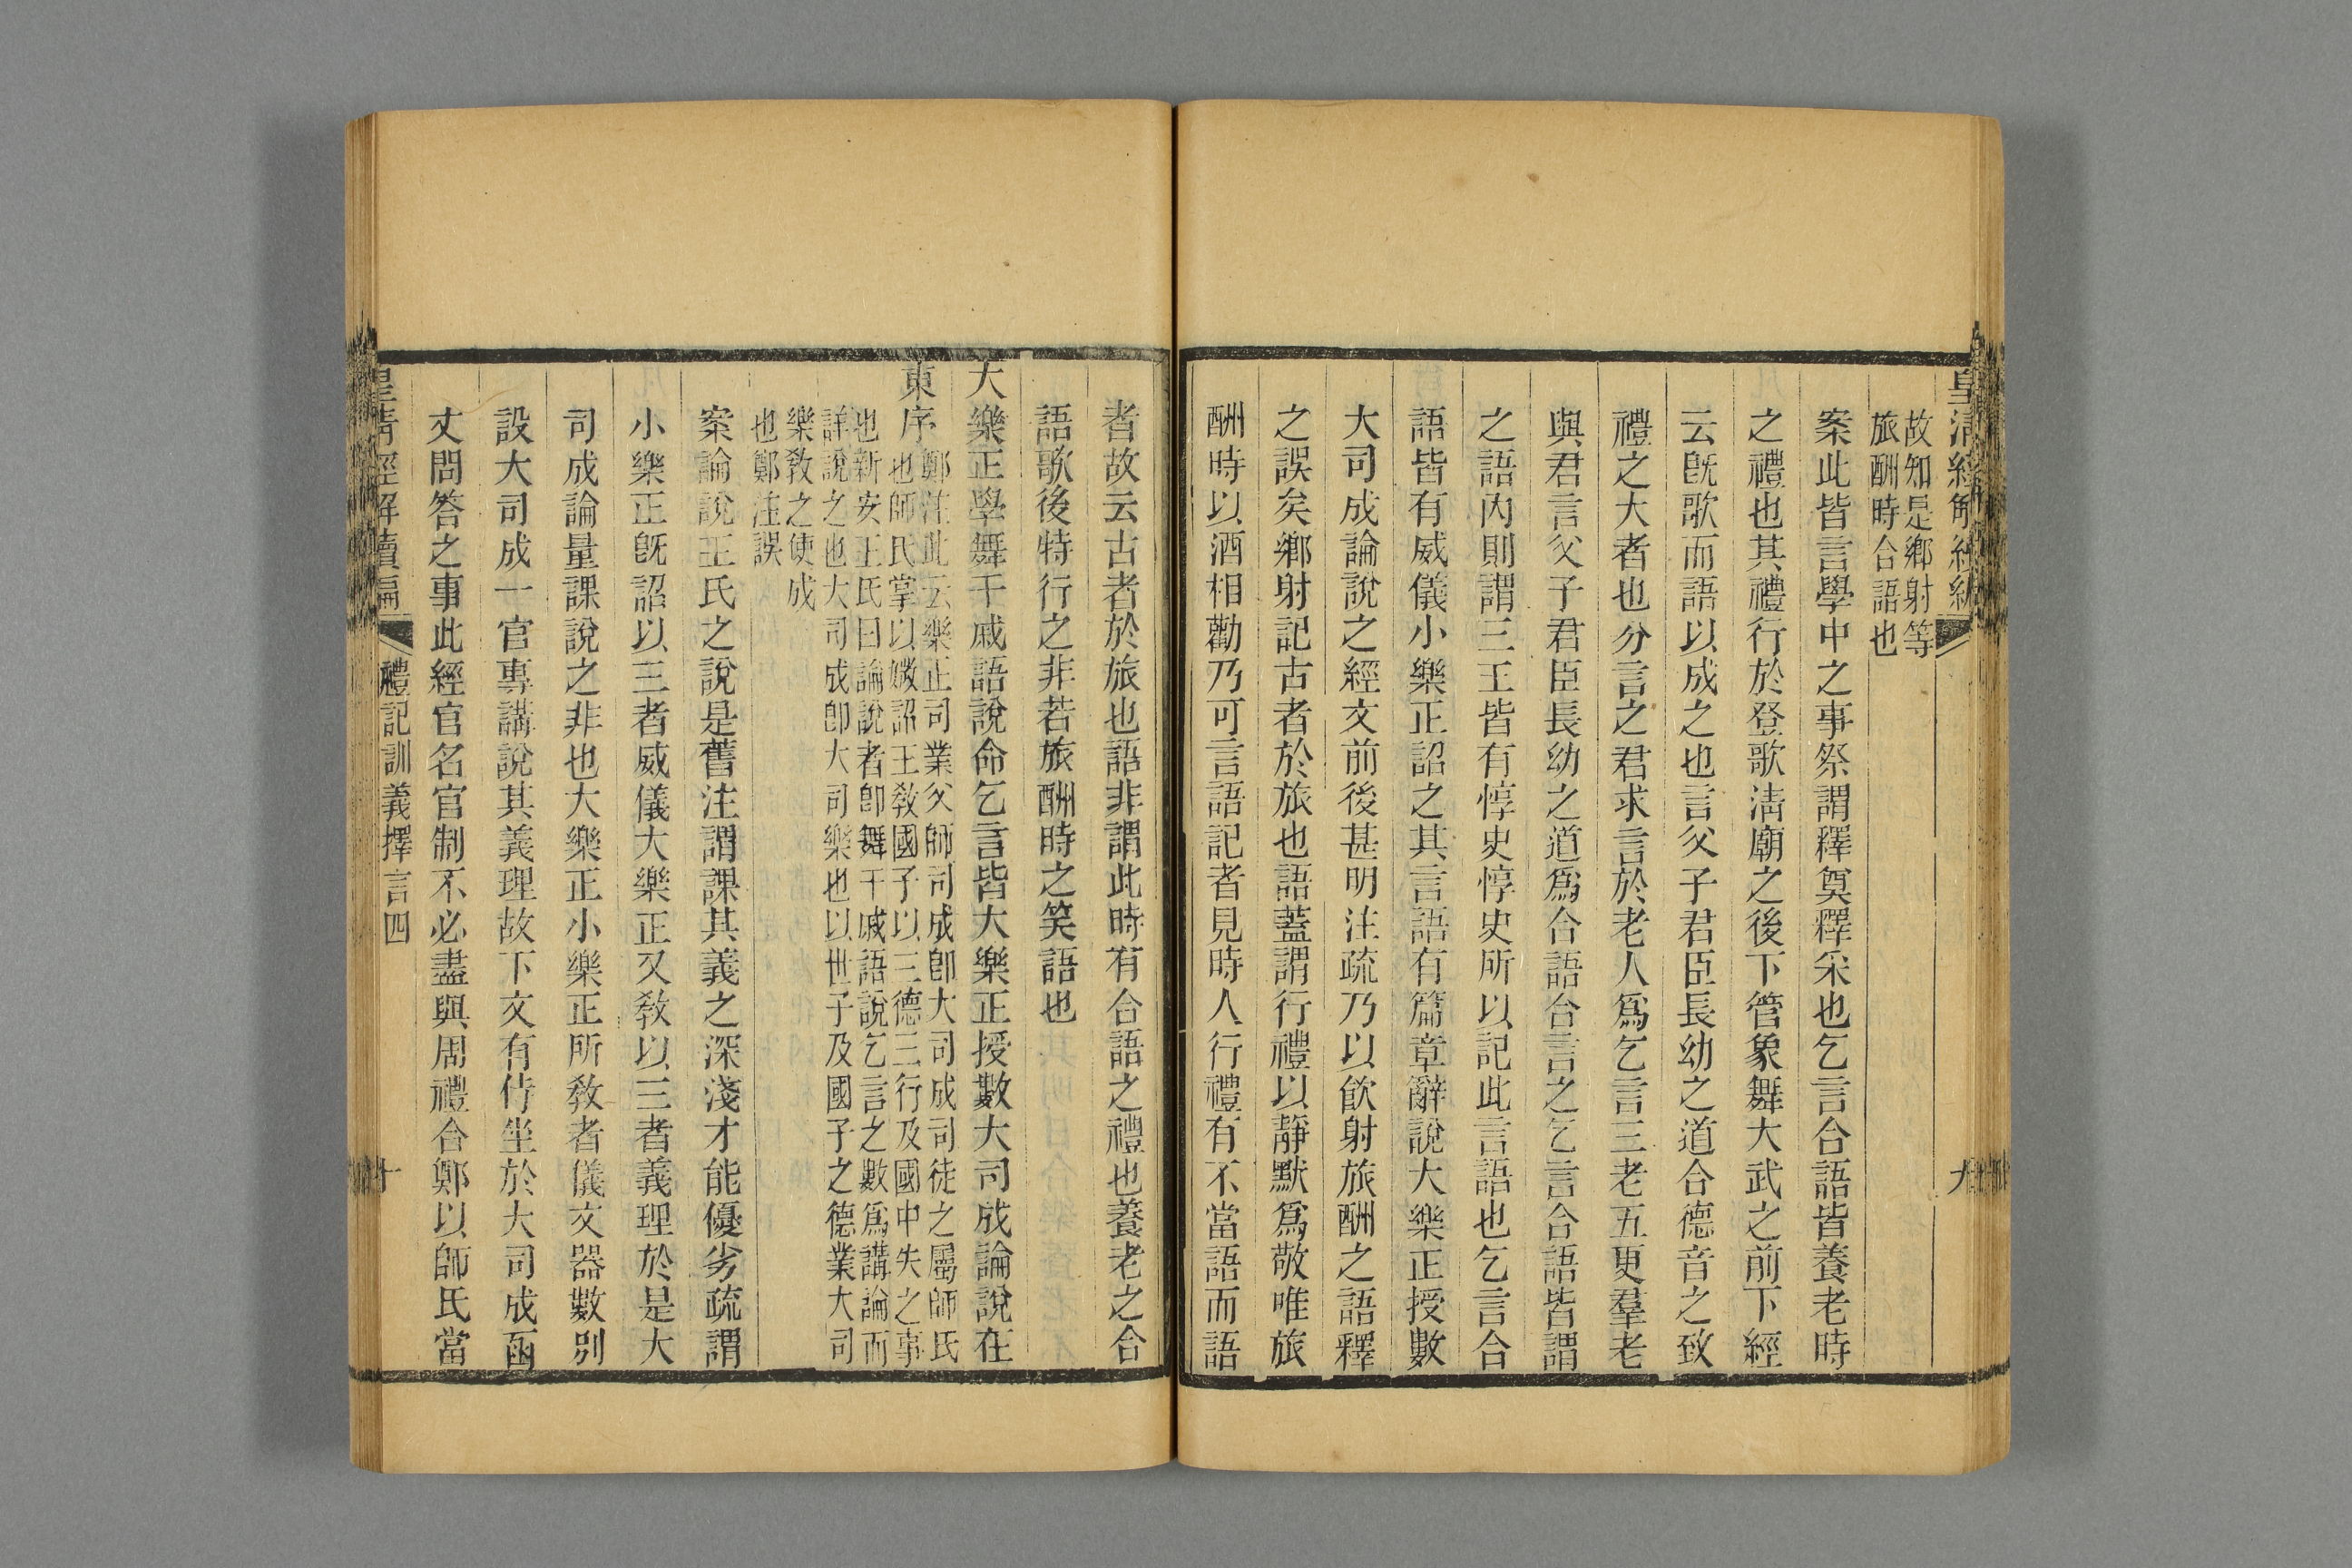 皇清經解續編
九
故知是鄉射等
旅酬時合語也
案此皆言學中之事祭謂釋奠釋采也乞言合語皆養老時
之禮也其禮行於登歌淸廟之後下管象舞大武之前下經
云旣歌而語以成之也言父子君臣長幼之道合德音之致
禮之大者也分言之君求言於老人爲乞言三老五更羣老
與君言父子君臣長幼之道爲合語合言之乞言合語皆謂
之語內則謂三王皆有惇史惇史所以記此言語也乞言合
語皆有威儀小樂正詔之其言語有篇章辭說大樂正授數
大司成論說之經文前後甚明注疏乃以飮射旅酬之語釋
之誤矣鄉射記古者於旅也語蓋謂行禮以靜默爲敬唯旅
酬時以酒相勸乃可言語記者見時人行禮有不當語而語
者故云古者於旅也語非謂此時有合語之禮也養老之合
語歌後特行之非若旅酬時之笑語也
大樂正學舞干戚語說命乞言皆大樂正授數大司成論說在
東序
鄭注此云樂正司業父師司成卽大司成司徒之屬師氏
也師氏掌以媺詔王敎國子以三德三行及國中失之事
也新安王氏曰論說者卽舞干戚語說乞言之數爲講論而
詳說之也大司成卽大司樂也以世子及國子之德業大司
樂敎之使成
也鄭注誤
案論說王氏之說是舊注謂課其義之深淺才能優劣疏謂
小樂正旣詔以三者威儀大樂正又敎以三者義理於是大
司成論量課說之非也大樂正小樂正所敎者儀文器數別
設大司成一官專講說其義理故下文有侍坐於大司成函
丈問答之事此經官名官制不必盡與周禮合鄭以師氏當
皇淸經解續編
禮記訓義擇言四
十